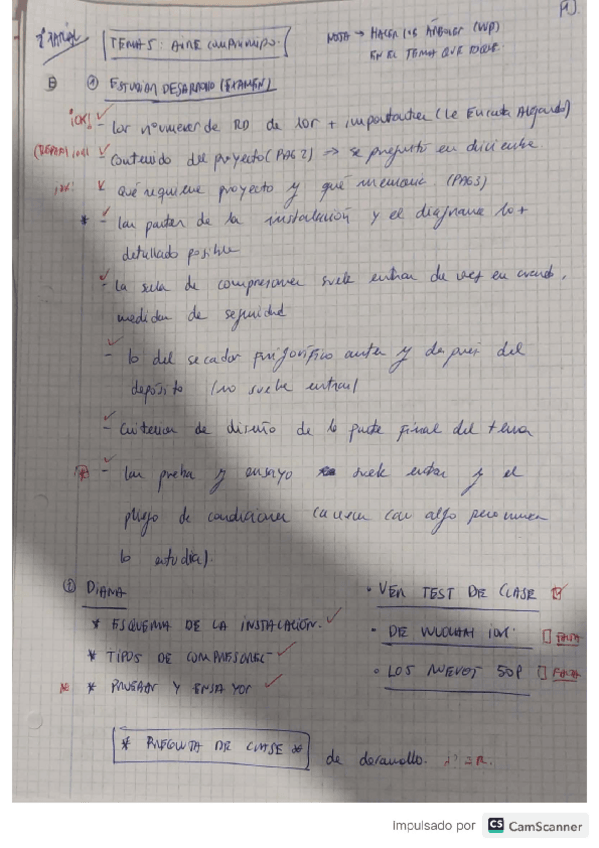 [1].
2º PARCIAL
TEMA 5: AIRE COMPRIMIDO.
NOTA → HACER LOS ÁRBOLES
EN EL TEMA QUE TOQUE
① ESTUDIAR DESARROLLO (EXAMEN)
¡OK! ✓ - los números de RD de los + importantes (le Encanta Alejandro)
✓ - Contenido del proyecto (PAG 2) → se preguntó en diciembre
✓ qué requiere proyecto y qué memoria. (PAG 3)
* ✓ - las partes de la instalación y el diagrama lo +
detallado posible
✓ - la sala de compresores suele entrar de vez en cuando,
medidas de seguridad
✓ - lo del secador frigorífico antes y después del
depósito (no suele entrar)
✓ - Criterios de diseño de la parte final del tema
* ✓ - las prueba y ensayo suele entrar y el
pliego de condiciones
lo estudia).
② DIANA
* ESQUEMA DE LA INSTALACIÓN. ✓
* TIPOS DE COMPRESORES ✓
* * PRUEBAS Y ENSAYOS ✓
• VER TEST DE CLASE ☑
• DE WUOLAH ☐ FALTA
• LOS NUEVOS ☐ FALTA
* PREGUNTA DE CLASE * de desarrollo.
Impulsado por CS CamScanner